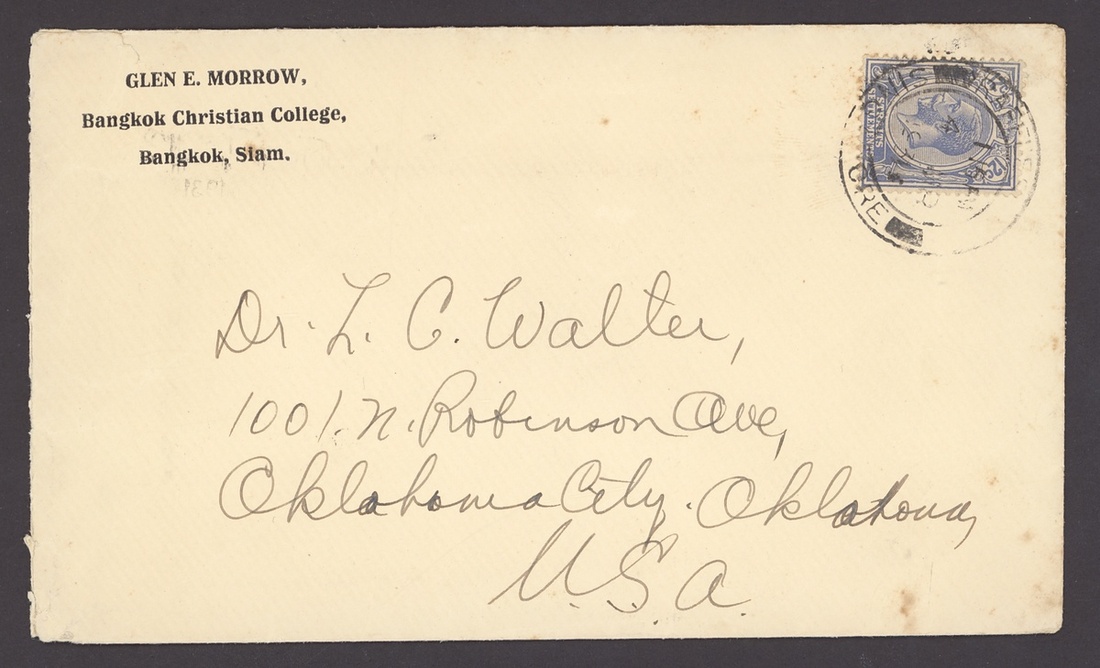 GLEN E. MORROW,
Bangkok Christian College,
Bangkok, Siam.
STRAITS
SETTLEMENTS
12c
Dr. L. C. Walter,
1001. N. Robinson Ave,
Oklahoma City. Oklahoma,
U.S.A.